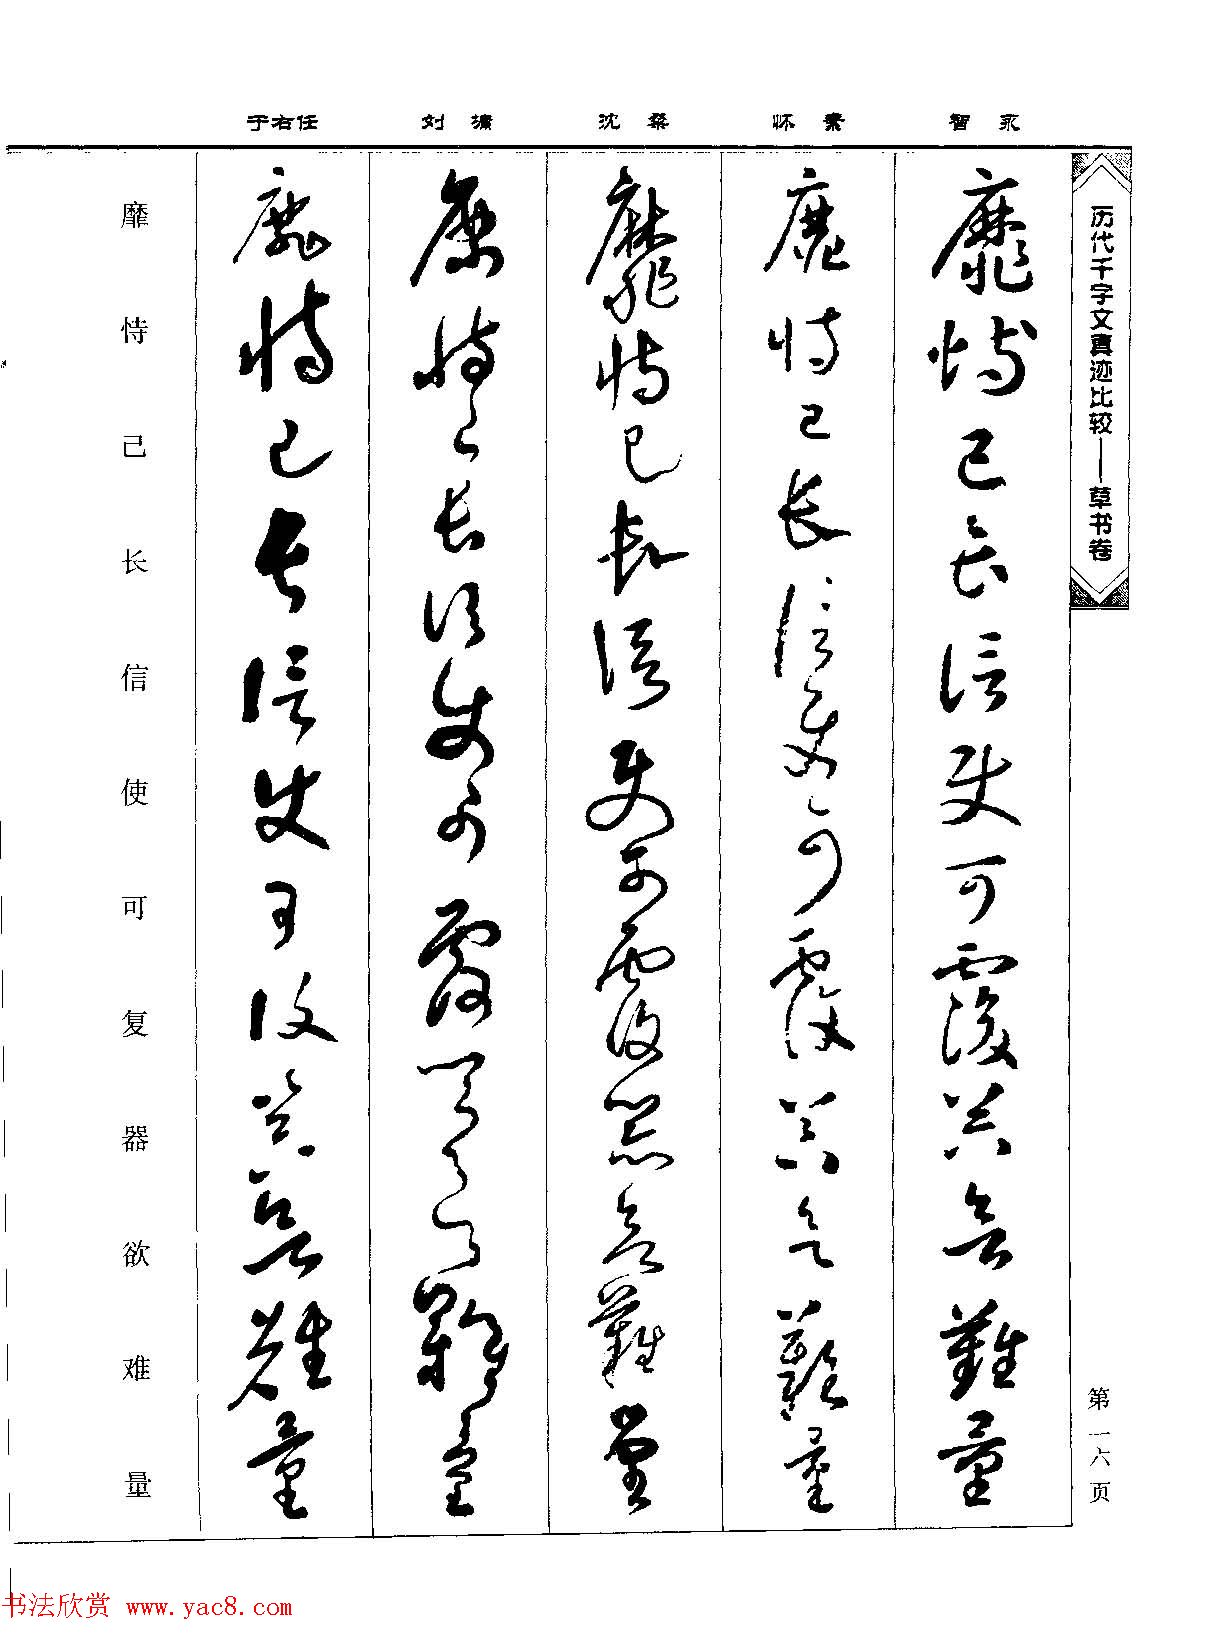 智永
怀素
沈粲
刘墉
于右任
历代千字文真迹比较——草书卷
第一六页
靡恃己长信使可覆器欲難量
靡恃己长信使可覆器欲難量
靡恃己長信使可覆器欲難量
靡恃己长信使可覆器欲難量
靡恃己长信使可覆器欲難量
靡恃己长信使可复器欲难量
书法欣赏 www.yac8.com